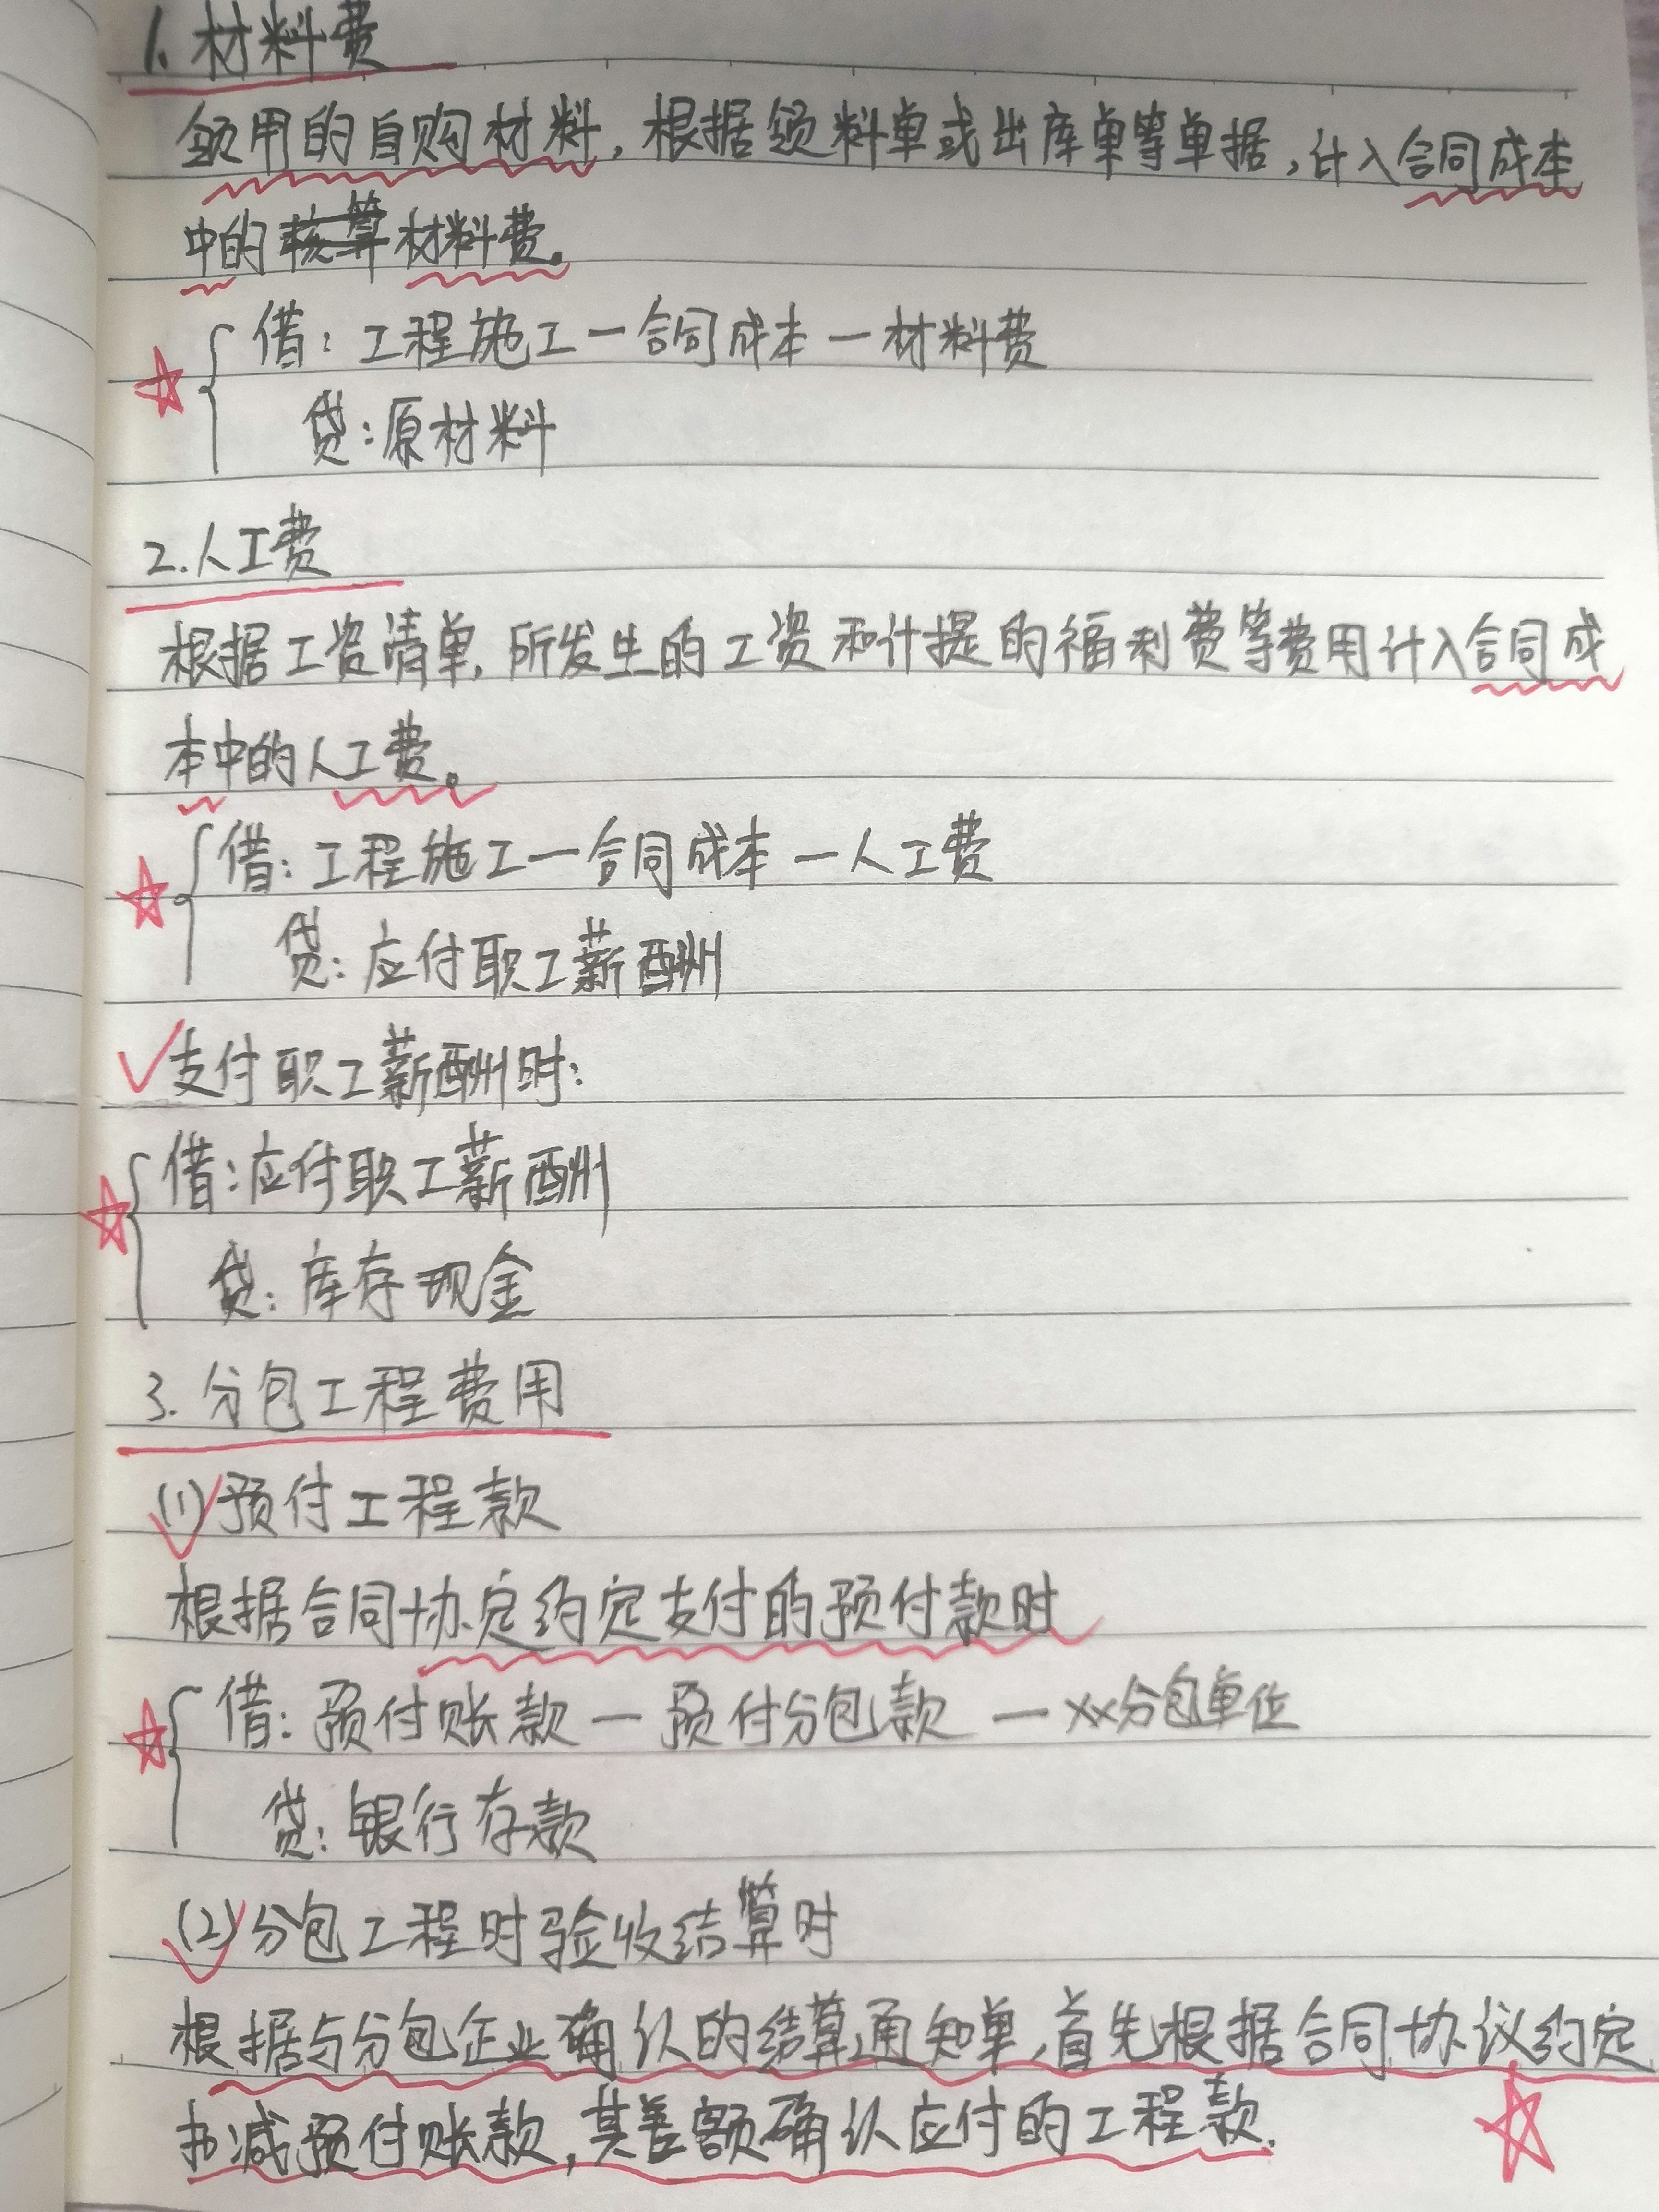 1. 材料费
领用的自购材料,根据领料单或出库单等单据,计入合同成本
中的核算材料费。
借:工程施工—合同成本—材料费
贷:原材料
2.人工费
根据工资清单,所发生的工资和计提的福利费等费用计入合同成
本中的人工费。
借:工程施工—合同成本—人工费
贷:应付职工薪酬
支付职工薪酬时:
借:应付职工薪酬
贷:库存现金
3.分包工程费用
(1)预付工程款
根据合同协定约定支付的预付款时
借:预付账款—预付分包款—xx分包单位
贷:银行存款
(2)分包工程时验收结算时
根据与分包企业确认的结算通知单,首先根据合同协议约定
扣减预付账款,其差额确认应付的工程款.